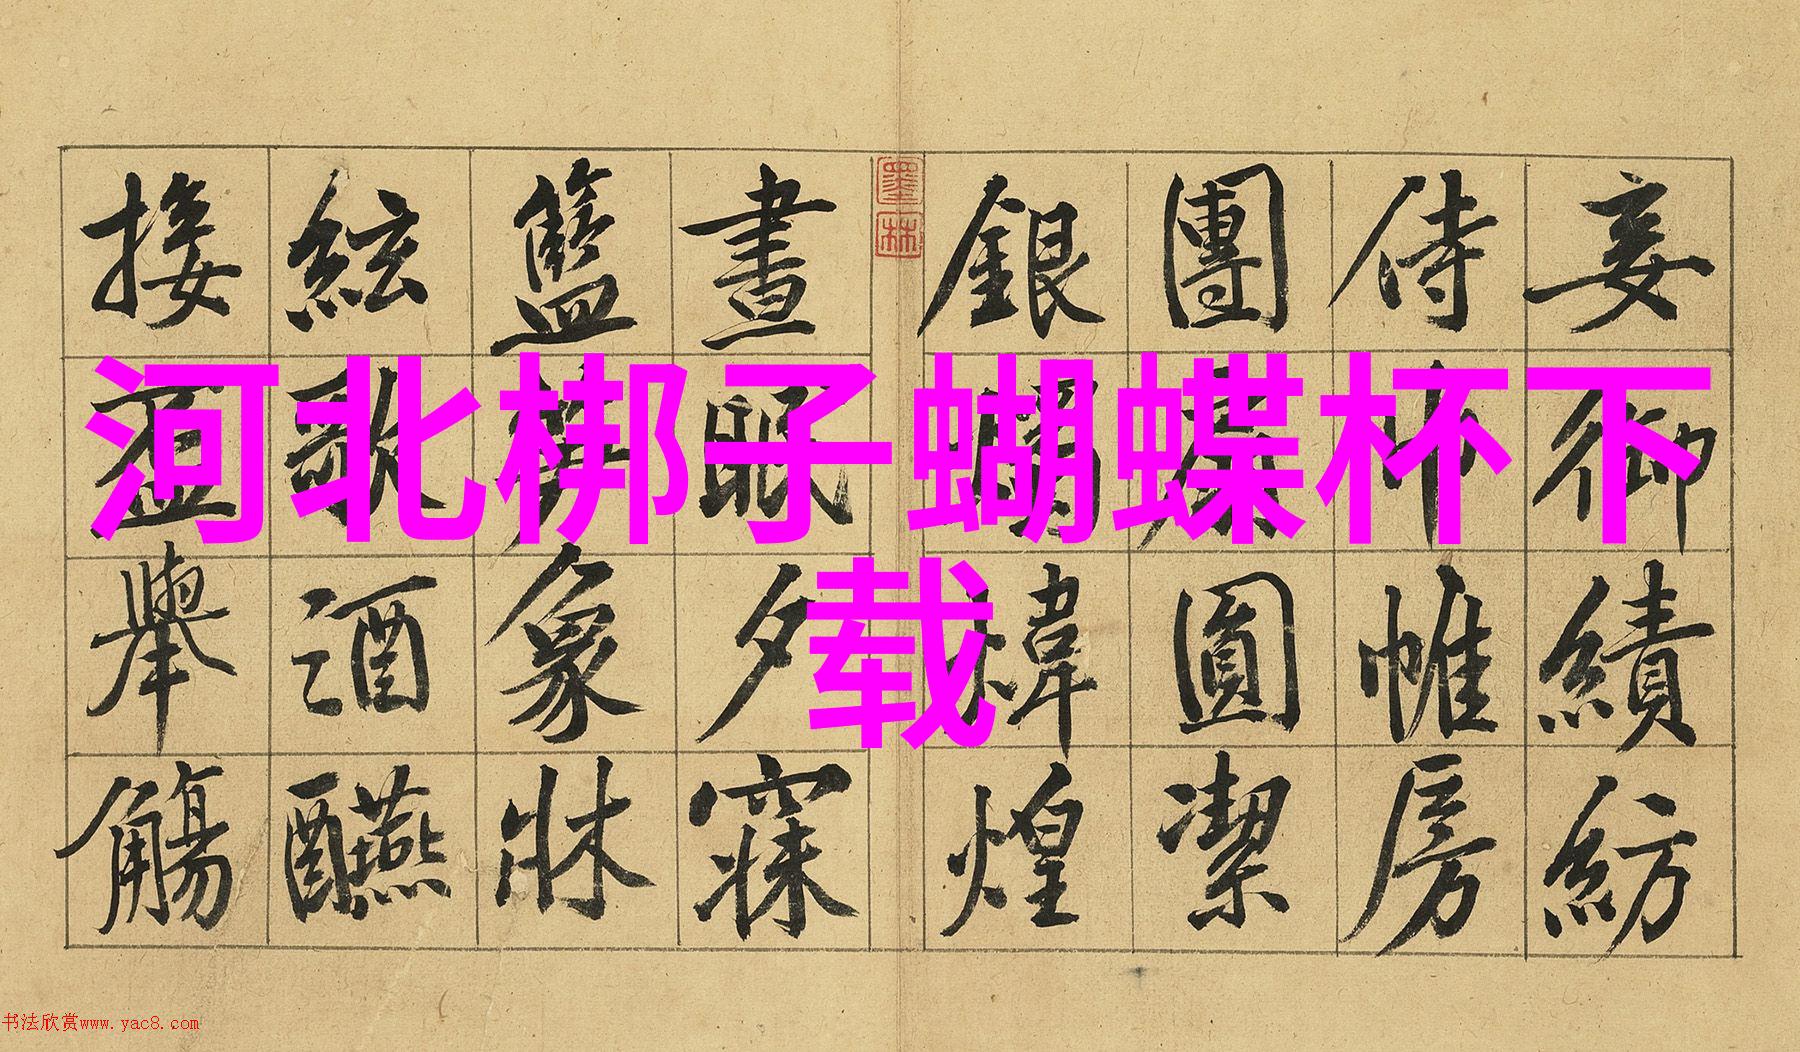 河北梆子蝴蝶杯下
载
妾御績紡
侍巾帷房
團扇圓潔
銀燭煒煌
墨林
晝眠夕寐
籃象牀
絃歌酒醼
接盃舉觴
书法欣赏www.yac8.com